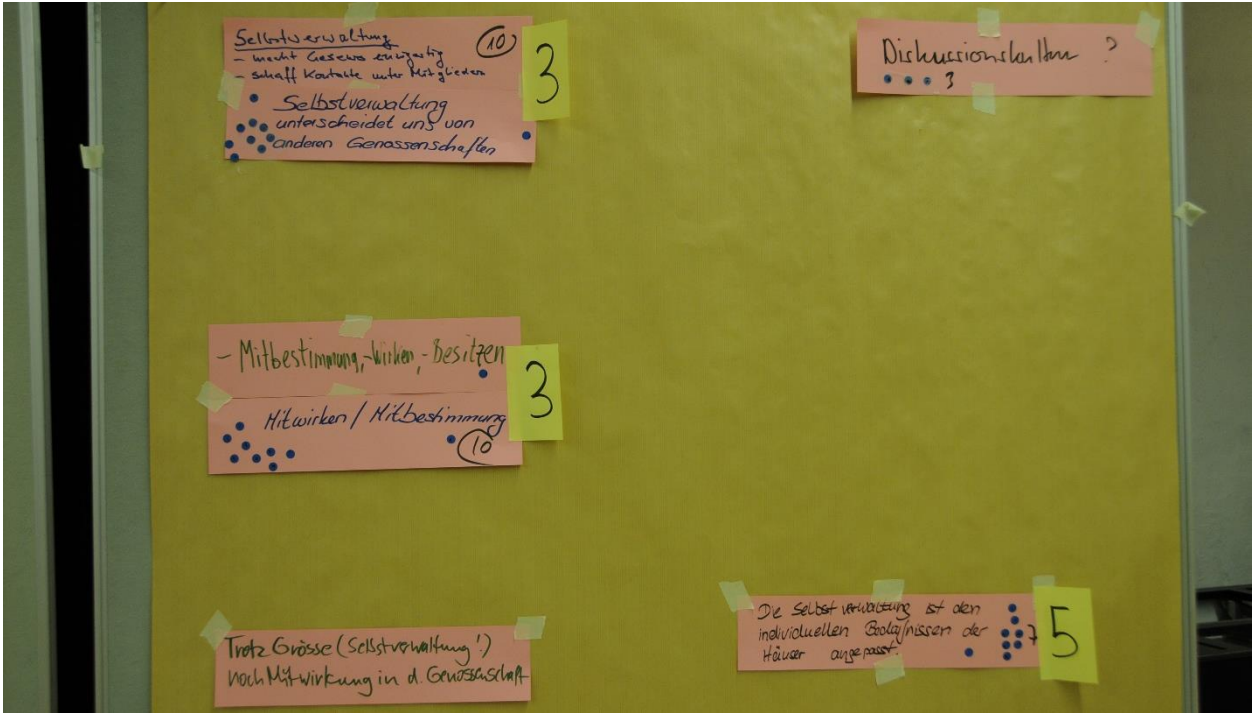 Selbstverwaltung 10
- macht Gesewo einzigartig
- schaff Kontakte unter Mitglieder
Selbstverwaltung
unterscheidet uns von
anderen Genossenschaften
3
Diskussionskultur ?
3
- Mitbestimmung, -Wirken, -Besitzen
Mitwirken / Mitbestimmung
10
3
Trotz Grösse (Selbstverwaltung!)
noch Mitwirkung in d. Genossenschaft
Die Selbstverwaltung ist den
individuellen der
Häuser angepasst.
7
5